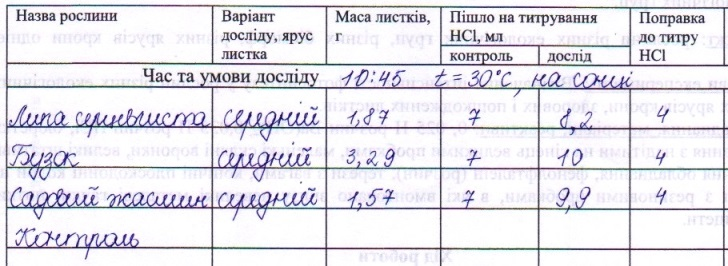 Назва рослини Варіант досліду, ярус листка Маса листків, г Пішло на титрування HCl, мл Поправка до титру HCl
контроль дослід
Час та умови досліду 10:45 t = 30°C, на сонці
Липа серцелиста середній 1,87 7 8,2 4
Бузок середній 3,29 7 10 4
Садовий жасмин середній 1,57 7 9,9 4
Контроль